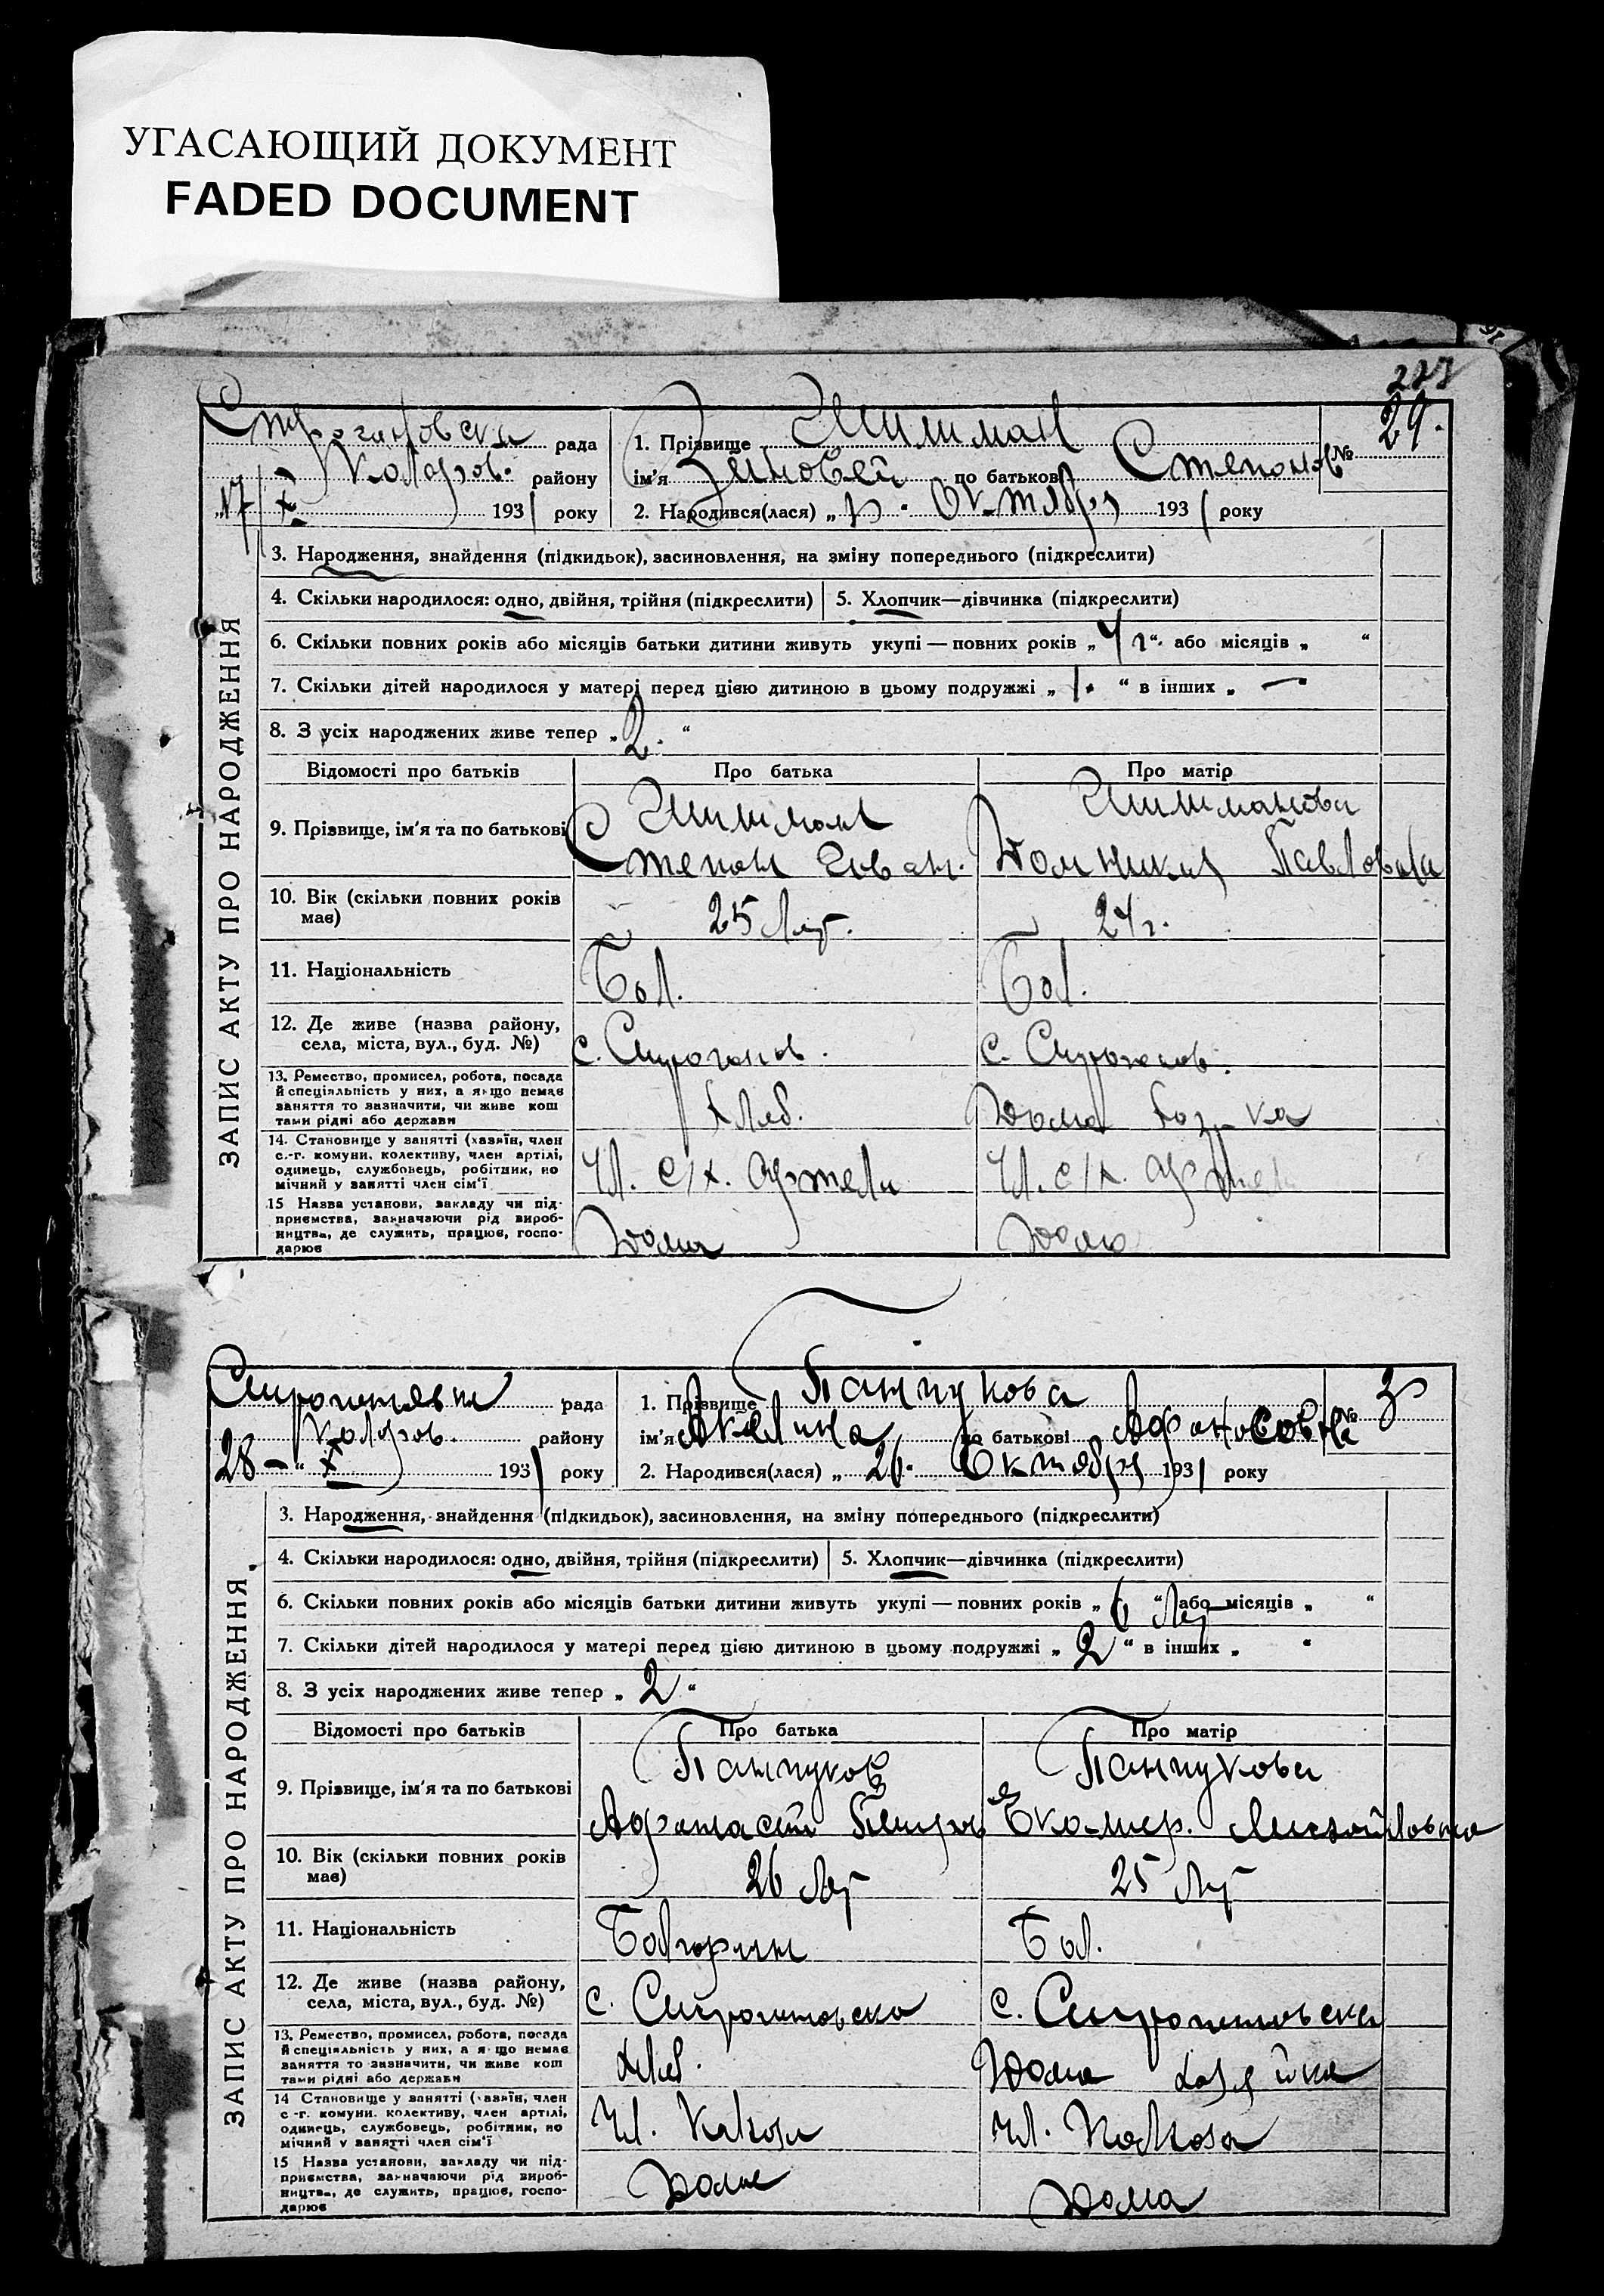 УГАСАЮЩИЙ ДОКУМЕНТ
FADED DOCUMENT
29.
Строгановска рада
Коларов. району
17/X 1931 року
1. Прізвище Шишман №
ім'я Зиновей по батькові Степонов
2. Народився(лася) „ Октября 1931 року
ЗАПИС АКТУ ПРО НАРОДЖЕННЯ
3. Народження, знайдення (підкидьок), засиновлення, на зміну попереднього (підкреслити)
4. Скільки народилося: одно, двійня, трійня (підкреслити) 5. Хлопчик—дівчинка (підкреслити)
6. Скільки повних років або місяців батьки дитини живуть укупі — повних років „4 г“. або місяців „ “
7. Скільки дітей народилося у матері перед цією дитиною в цьому подружжі „ 1. “ в інших „ —
8. З усіх народжених живе тепер „ 2. “
Відомості про батьків Про батька Про матір
9. Прізвище, ім'я та по батькові Шишман Шишманова
Степан Иван. Домникия Павловна
10. Вік (скільки повних років має) 25 лет. 24 г.
11. Національність Бол. Бол.
12. Де живе (назва району, села, міста, вул., буд. №) с. Строганов. с. Строганов.
13. Ремество, промисел, робота, посада
й спеціяльність у них, а якщо немає
заняття то зазначити, чи живе кош
тами рідні або держави хлеб. Дома хоз-ка
14. Становище у занятті (хазяїн, член
с.-г. комуни, колективу, член артілі,
одинець, службовець, робітник, по
мічний у занятті член сім'ї Чл. с/х. артели Чл. с/х. артели
15 Назва установи, закладу чи під-
приємства, зазначаючи рід вироб-
ництва, де служить, працює, госпо-
дарює Дома Дома
Строгановка рада
Коларов. району
28 — „ X 1931 року
1. Прізвище Панчукова №
ім'я Акелина по батькові Афоносовна
2. Народився(лася) „ 26. Октября 1931 року
ЗАПИС АКТУ ПРО НАРОДЖЕННЯ
3. Народження, знайдення (підкидьок), засиновлення, на зміну попереднього (підкреслити)
4. Скільки народилося: одно, двійня, трійня (підкреслити) 5. Хлопчик—дівчинка (підкреслити)
6. Скільки повних років або місяців батьки дитини живуть укупі — повних років „ 6 “ лет або місяців „ “
7. Скільки дітей народилося у матері перед цією дитиною в цьому подружжі „ 2 “ в інших „ “
8. З усіх народжених живе тепер „ 2 “
Відомості про батьків Про батька Про матір
9. Прізвище, ім'я та по батькові Панчуков Панчукова
Афанасий Петров Екатер. Михайловна
10. Вік (скільки повних років має) 26 лет 25 лет
11. Національність Болгарин Бол.
12. Де живе (назва району, села, міста, вул., буд. №) с. Строгановска с. Строгановска
13. Ремество, промисел, робота, посада
й спеціяльність у них, а якщо немає
заняття то зазначити, чи живе кош
тами рідні або держави хлеб. Дома хозяйка
14 Становище у занятті (хазяїн, член
с.-г. комуни, колективу, член артілі,
одинець, службовець, робітник, по
мічний у занятті член сім'ї Чл. Колхоза Чл. Колхоза
15 Назва установи, закладу чи під-
приємства, зазначаючи рід вироб-
ництва, де служить, працює, госпо-
дарює Дома Дома